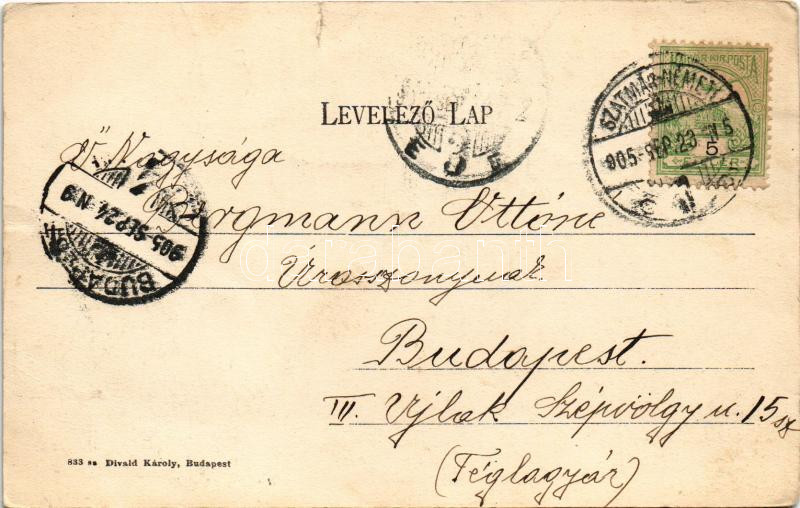 LEVELEZŐ LAP
MAGYAR KIR. POSTA
5
SZATMÁR-NÉMETI
905 SEP 23 N 5
Ő Nagysága
Bergmann Ottóné
Úrasszonynak
Budapest.
III. Ujlak Szépvölgy u. 15 sz
(Téglagyár)
BUDAPEST
905 SEP 24 N 9
darabanth
833 sz Divald Károly, Budapest